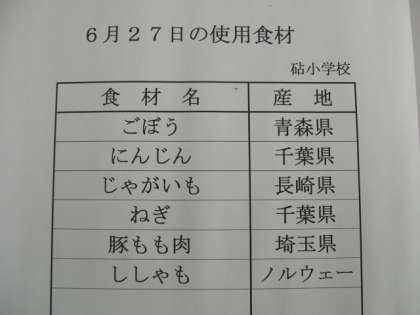 6月27日の使用食材
砧小学校
食材名 産地
ごぼう 青森県
にんじん 千葉県
じゃがいも 長崎県
ねぎ 千葉県
豚もも肉 埼玉県
ししゃも ノルウェー